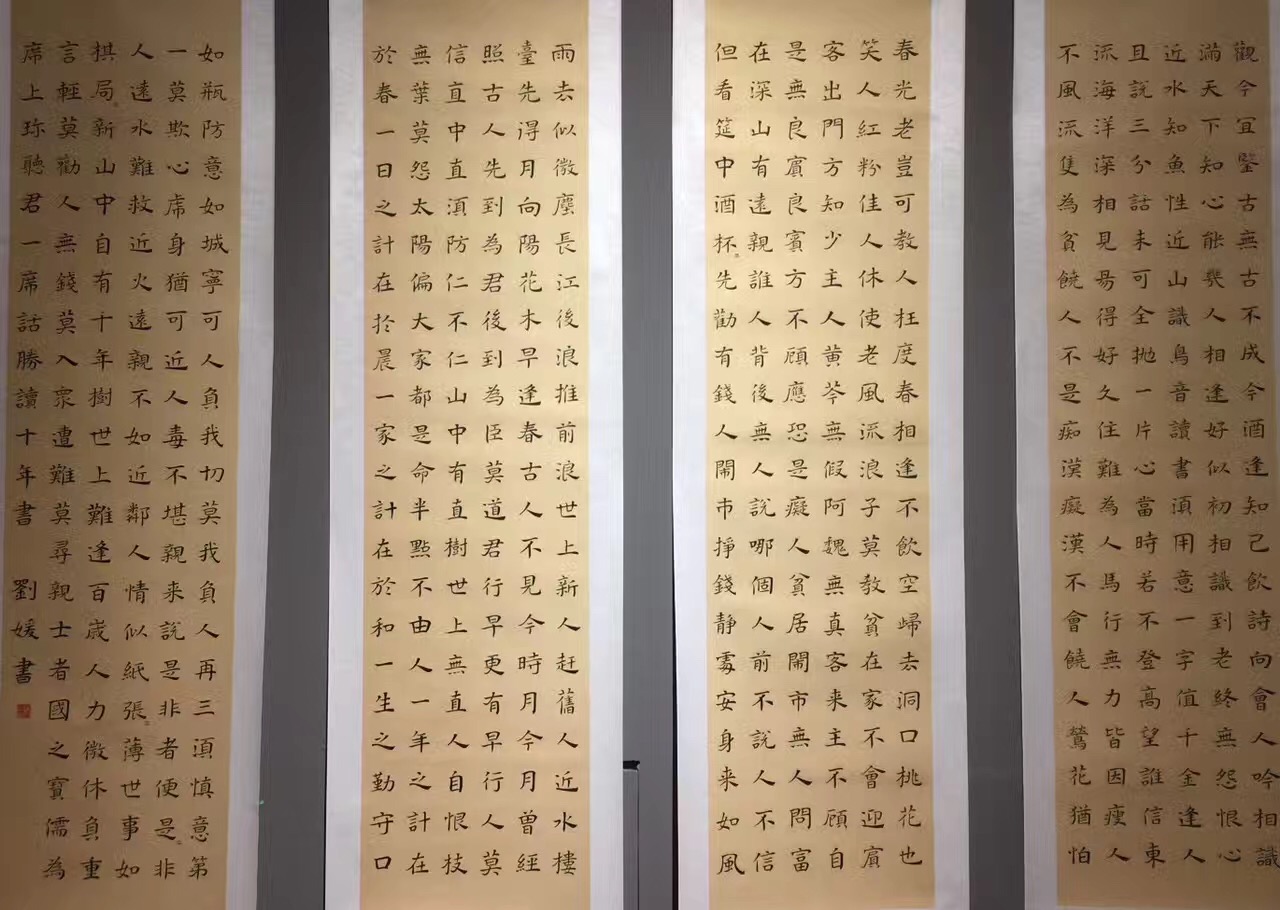 觀今冝鑒古無古不成今酒逢知己飲詩向會人吟相識
滿天下知心能㡬人相逢好似初相識到老終無怨恨心
近水知魚性近山識鳥音讀書湏用意一字值千金逢人
且説三分話未可全抛一片心當時若不登高望誰信東
流海洋深相見易得好久住難為人馬行無力皆因瘦人
不風流隻為貧饒人不是痴漢癡漢不會饒人鶯花猶怕
春光老豈可教人枉度春相逢不飲空歸去洞口桃花也
笑人紅粉佳人休使老風流浪子莫教貧在家不會迎賔
客出門方知少主人黄芩無假阿魏無真客来主不顧自
是無良賔良賓方不顧應恐是癡人貧居鬧市無人問富
在深山有遠親誰人背後無人説哪個人前不説人不信
但看筵中酒杯先勸有錢人鬧市掙錢静處安身来如風
雨去似微塵長江後浪推前浪世上新人赶舊人近水樓
臺先得月向陽花木早逢春古人不見今時月今月曾經
照古人先到為君後到為臣莫道君行早更有早行人莫
信直中直湏防仁不仁山中有直樹世上無直人自恨枝
無葉莫怨太陽偏大家都是命半點不由人一年之計在
於春一日之計在扵晨一家之計在於和一生之勤守口
如瓶防意如城寧可人負我切莫我負人再三湏慎意第
一莫欺心虎身猶可近人毒不堪親来説是非者便是非
人遠水難救近火遠親不如近鄰人情似紙張薄世事如
棋局新山中自有千年樹世上難逢百歲人力微休負重
言輕莫勸人無錢莫入眾遭難莫尋親士者國之寶濡為
席上珎聽君一席話勝讀十年書 劉媛書